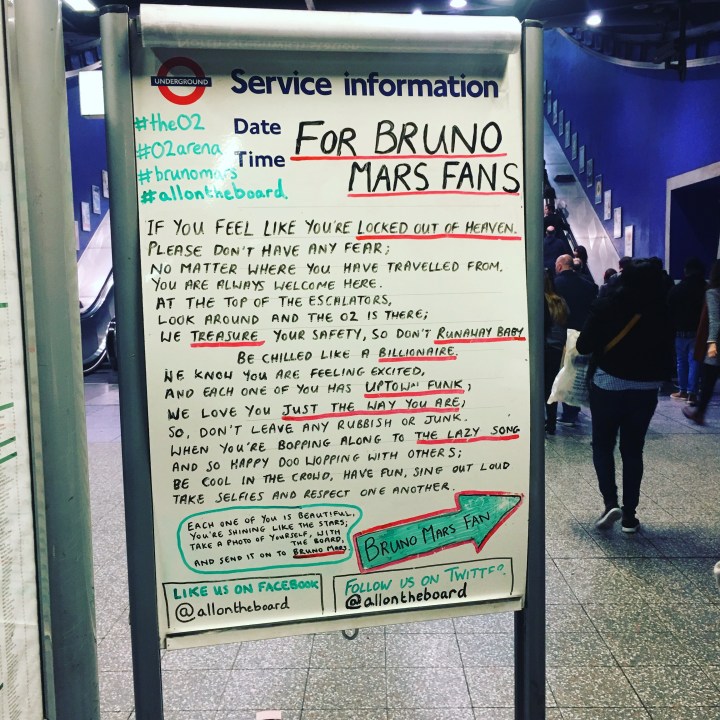 UNDERGROUND
Service information
#theO2
#O2arena
#brunomars
#allontheboard.
Date
Time
FOR BRUNO
MARS FANS
IF YOU FEEL LIKE YOU'RE LOCKED OUT OF HEAVEN.
PLEASE DON'T HAVE ANY FEAR;
NO MATTER WHERE YOU HAVE TRAVELLED FROM,
YOU ARE ALWAYS WELCOME HERE.
AT THE TOP OF THE ESCALATORS,
LOOK AROUND AND THE O2 IS THERE;
WE TREASURE YOUR SAFETY, SO DON'T RUNAWAY BABY
BE CHILLED LIKE A BILLIONAIRE.
WE KNOW YOU ARE FEELING EXCITED,
AND EACH ONE OF YOU HAS UPTOWN FUNK;
WE LOVE YOU JUST THE WAY YOU ARE;
SO, DON'T LEAVE ANY RUBBISH OR JUNK.
WHEN YOU'RE BOPPING ALONG TO THE LAZY SONG
AND SO HAPPY DOO WOPPING WITH OTHERS;
BE COOL IN THE CROWD, HAVE FUN, SING OUT LOUD
TAKE SELFIES AND RESPECT ONE ANOTHER.
EACH ONE OF YOU IS BEAUTIFUL,
YOU'RE SHINING LIKE THE STARS;
TAKE A PHOTO OF YOURSELF, WITH
THE BOARD,
AND SEND IT ON TO BRUNO MARS.
BRUNO MARS FAN
LIKE US ON FACEBOOK
@allontheboard
FOLLOW US ON TWITTER.
@allontheboard